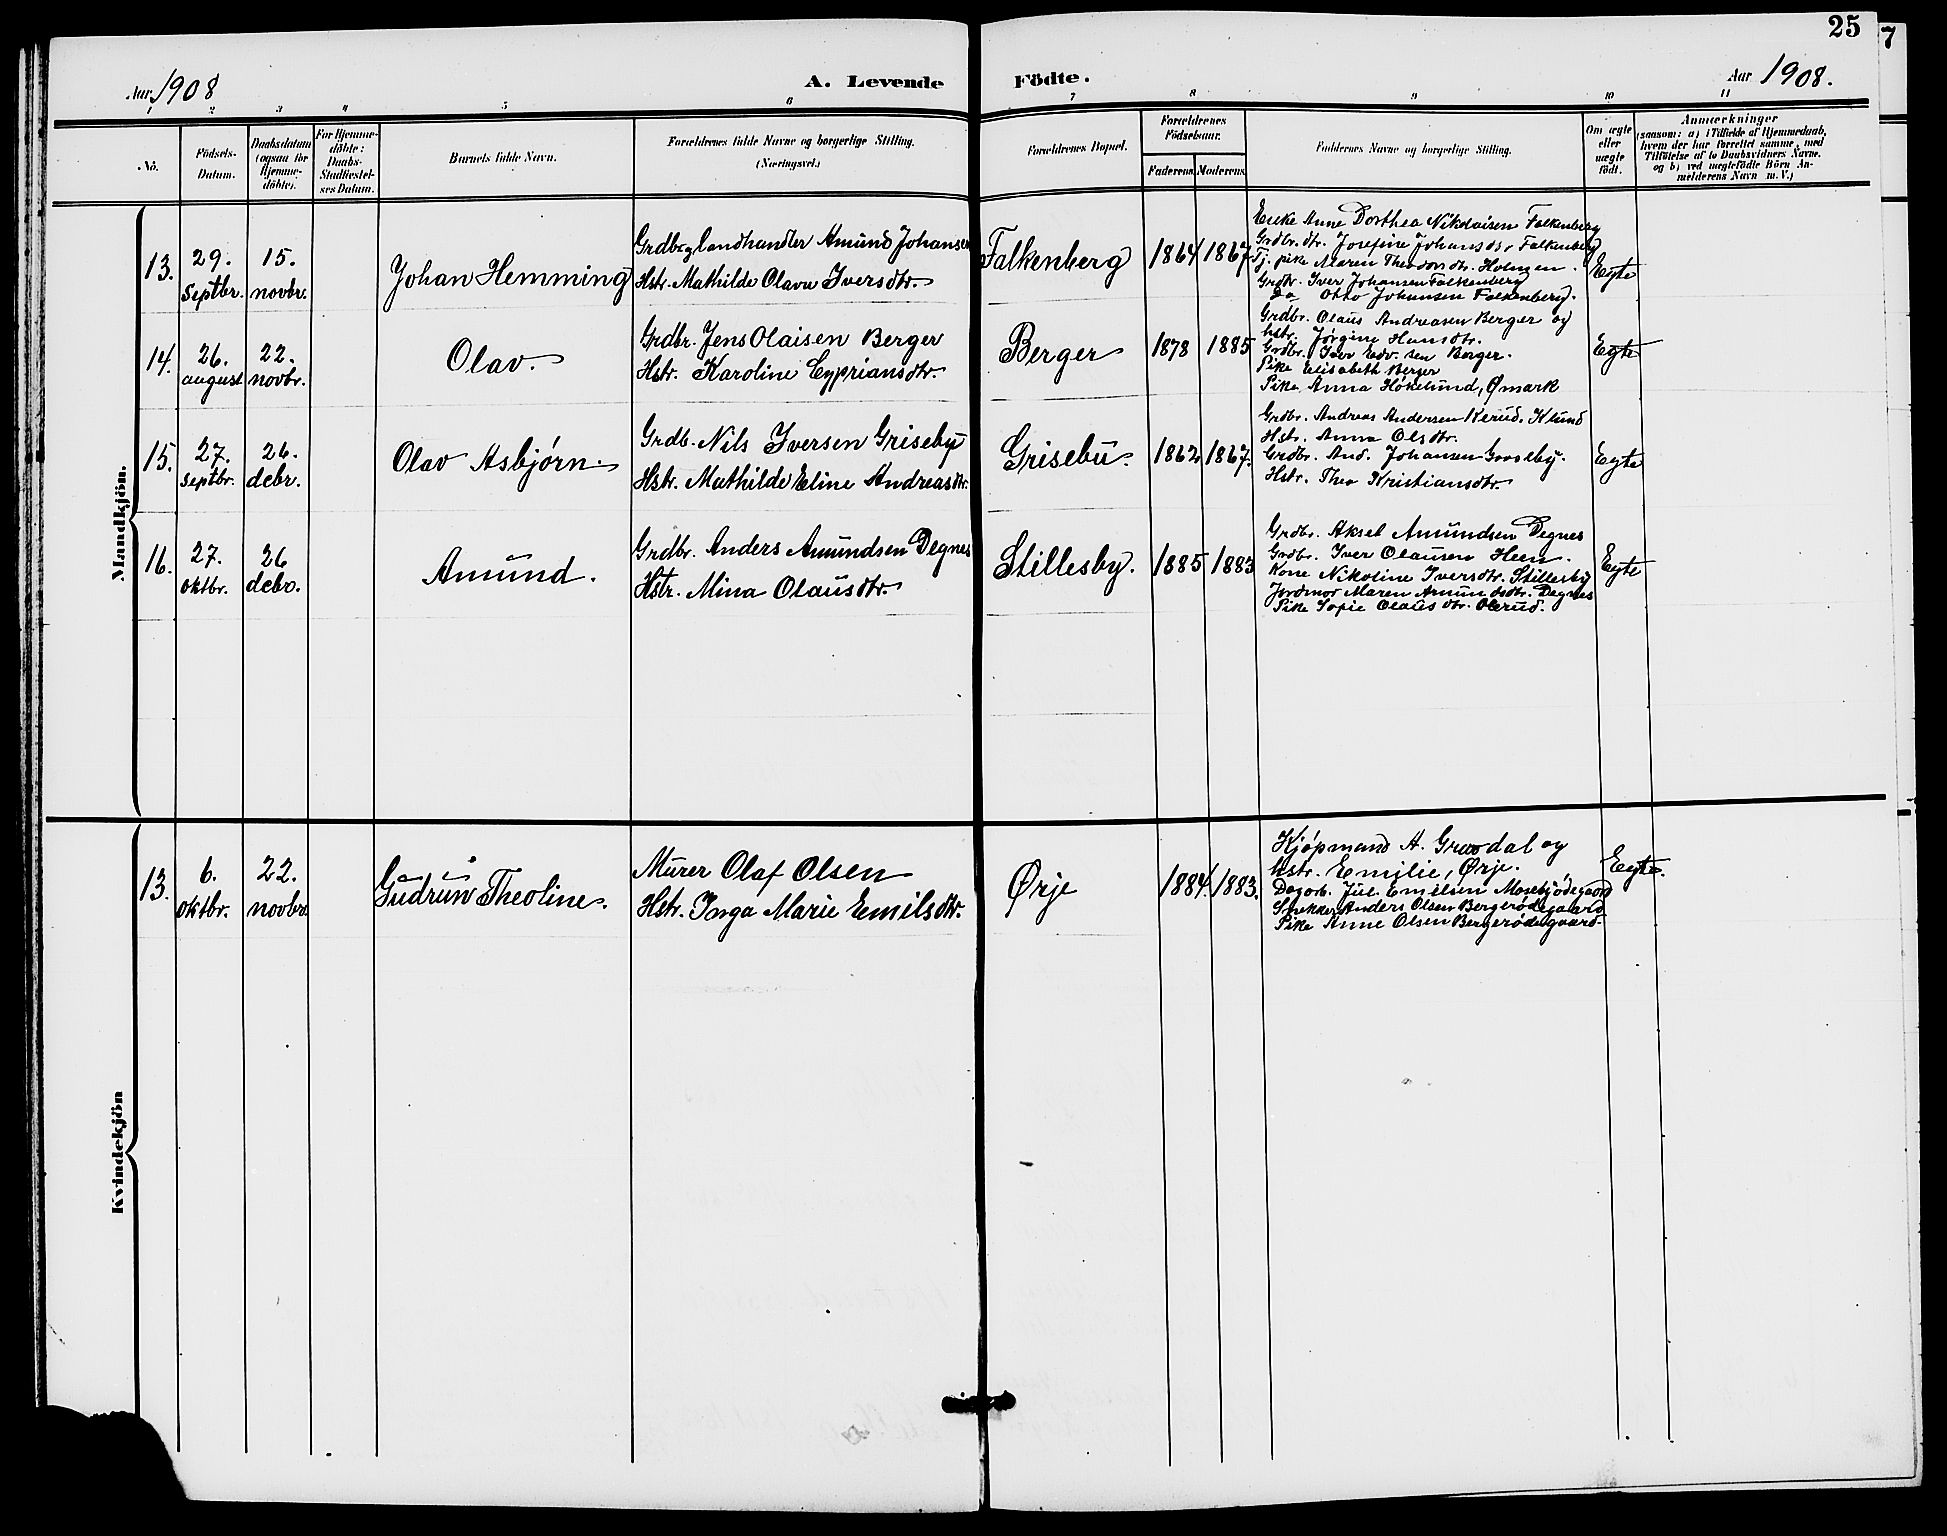 25
7
Aar 1908
A. Levende
Födte.
Aar 1908.
1 2 3 4 5 6 7 8 9 10 11
No.
Födsels-
Datum.
Daabsdatum
(ogsaa for
Hjemme-
döbte).
For Hjemme-
döbte:
Daabs-
Stadfæstel-
ses Datum.
Barnets fulde Navn.
Forældrenes fulde Navne og borgerlige Stilling.
(Næringsvei.)
Forældrenes Bopæl.
Forældrenes
Födselsaar.
Faderens
Moderens
Faddernes Navne og borgerlige Stilling.
Om ægte
eller
uægte
födt.
Anmærkninger
(saasom: a) i Tilfælde af Hjemmedaab,
hvem der har forrettet samme, med
Tilföielse af to Daabsvidners Navne,
og b) ved uægtefödte Börn An-
melderens Navn m. V.)
Mandkjön.
13.
29.
septbr.
15.
novbr.
Johan Hemming
Grdbr. og landhandler Amund Johansen
Hstr. Mathilde Olava Iversdtr.
Falkenberg
1864
1867
Enke Anne Dorthea Nikolaisen Falkenberg
Grdbr. dtr. Josefine Johansdr. Falkenberg
Tj. pike Maren Theodorsdtr.
Grdbr. Iver Johansen Falkenberg
Do Otto Johansen Falkenberg.
Egte
14.
26.
august
22.
novbr.
Olav.
Grdbr. Jens Olaisen Berger
Hstr. Karoline Cypriansdtr.
Berger
1878
1885
Grdbr. Olaus Andreasen Berger og
hstr. Jørgine Hansdtr.
Grdbr. Iver Edv.sen Berger.
Pike Elisabeth Berger
Pike Anna Høkelund, Ømark
Egte
15.
27.
septbr.
26.
debr.
Olav Asbjørn.
Grdb. Nils Iversen Griseby
Hstr. Mathilde Eline Andreasdtr.
Grisebu.
1862
1867.
Grdbr. Andreas Andersen Kerud. Klund
Hstr. Anna Olsdtr.
Grdbr. And. Johansen
Hstr. Thea Kristiansdtr.
Egte
16.
27.
oktbr.
26
debr.
Amund.
Grdbr. Anders Amundsen Degnes
Hstr. Mina Olausdtr.
Stillesby.
1885
1883
Grdbr. Aksel Amundsen Degnes
Grdbr. Iver Olausen Heen.
Kone Nikoline Iversdtr. Stillesby
Jordmor Maren Amundsdtr. Degnes
Pike Sofie Olausdtr.
Egte
Kvindekjön
13.
6.
oktbr.
22.
novbr.
Gudrun Theoline.
Murer Olaf Olsen
Hstr. Inga Marie Emilsdtr.
Ørje
1884.
1883.
Kjøpmand A. Grøsdal og
hstr. Emilie, Ørje.
Dagarb. Jul. Emilsen Mosebjødegaard
Snekker Anders Olsen Bergerødegaard
Pike Anne Olsen Bergerødegaard.
Egte.